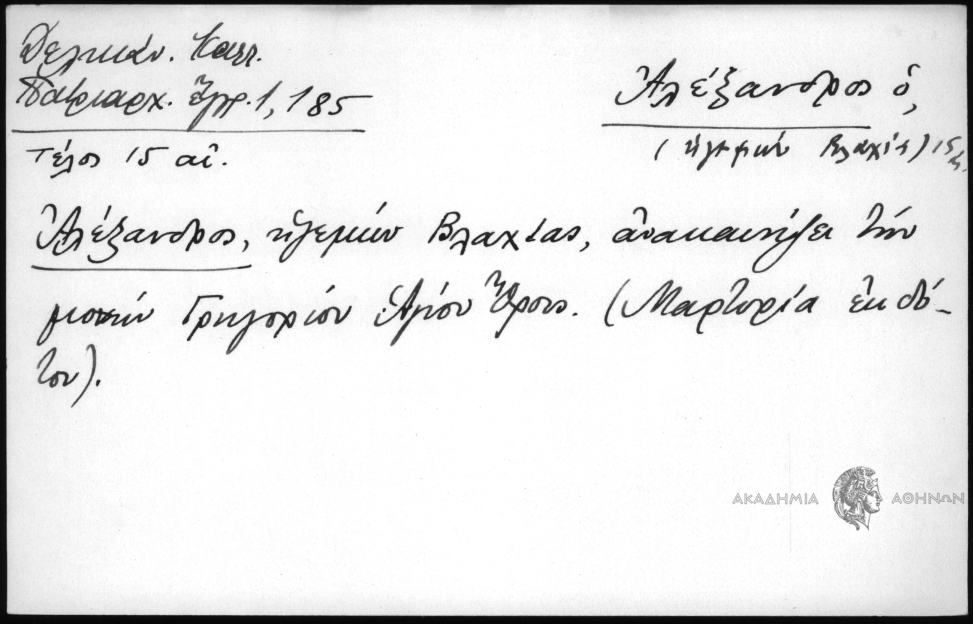 Δελικάν. Καλλ.
Πατριαρχ. ἔγγρ. 1, 185
Τέλος 15 αἰ.
Ἀλέξανδρος ὁ,
(ἡγεμών Βλαχίας) 15
Ἀλέξανδρος, ἡγεμών Βλαχίας, ἀνακαινίζει τήν
μονήν Γρηγορίου Ἁγίου Ὄρους. (Μαρτυρία ἐκδό-
του).
ΑΚΑΔΗΜΙΑ ΑΘΗΝΩΝ